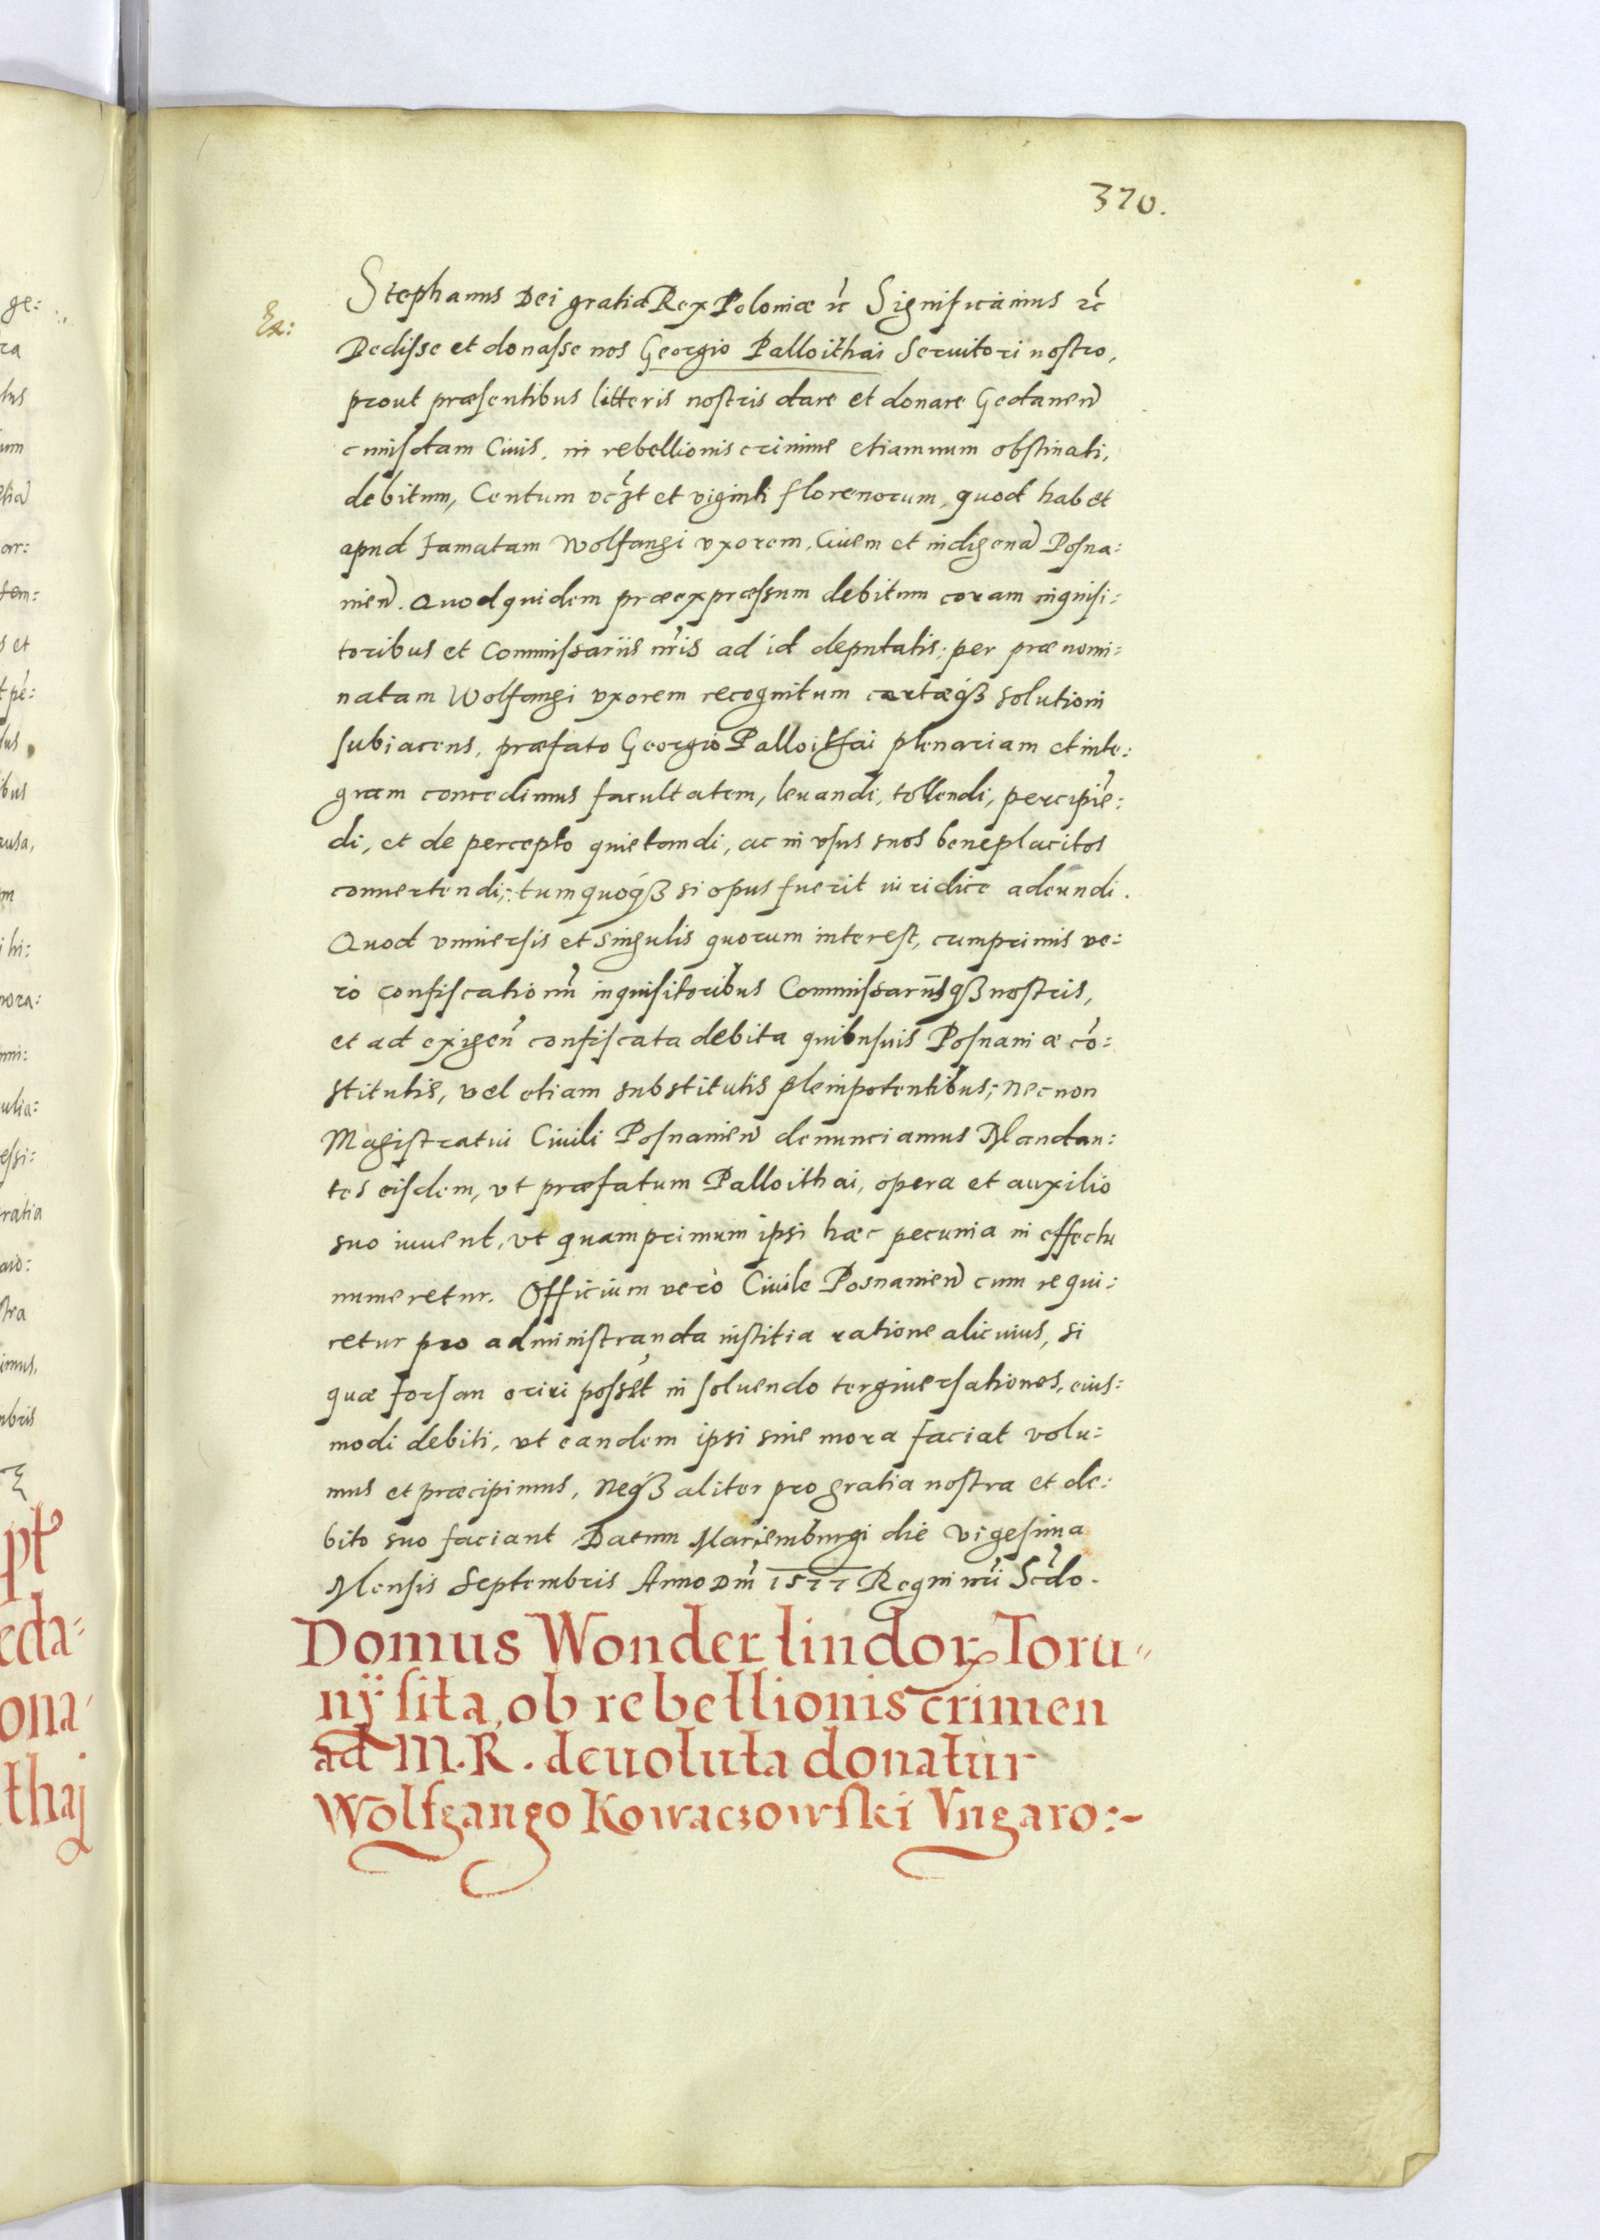 370.
Ex:
Stephanus Dei gratia Rex Poloniæ etc̃ Significamus etc̃
Dedisse et donasse nos Georgio Palloithai Seruitori nostro,
prout præsentibus litteris nostris dare et donare Gedaneñ
cuiusdam Ciuis, in rebellionis crimine etiamnum obstinati,
debitum, Centum et viginti florenorum, quod habet
apud famatam Wolfangi vxorem, Ciuem et indigenã Posna:
nieñ. Quodquidem præexpressum debitum coram inquisi:
toribus et Commissariis nr̃is ad id deputatis, per præ nomi:
natam Wolfangi vxorem recognitum certæq́ꝫ solutioni
subiacens, præfato Georgio Palloithai plenariam et inte:
gram concedimus facultatem, leuandi, tollendi, percipiẽ:
di, et de percepto quietandi, ac in vsus suos beneplacitos
conuertendi; tum quoq́ꝫ si opus fuerit iuridice adeundi.
Quod vniuersis et singulis quorum interest, cumprimis ve:
rò confiscationũ inquisitoribus Commissariisq́ꝫ nostris,
et ad exigeñ confiscata debita quibusuis Posnaniæ cõ:
stitutis, vel etiam substitutis plenipotentibus; nec non
Magistratui Ciuili Posnanieñ denunciamus Mandan:
tes eisdem, vt præfatum Palloithai, opera et auxilio
suo iuuent, vt quamprimum ipsi hæc pecunia in effectu
numeretur. Officium verò Ciuile Posnanieñ cum requi:
retur pro administranda iustitia ratione alicuius, si
quæ forsan oriri possẽt in soluendo tergiuersationes, eius:
modi debiti, vt eandem ipsi sine mora faciat volu:
mus et præcipimus, Neq́ꝫ aliter pro gratia nostra et de:
bito suo faciant Datum Mariemburgi die vigesima
Mensis Septembris Anno Dnĩ 1577 Regni nr̃i Scđo.
Domus Wonder lindorꝝ Toru
nij sita, ob rebellionis crimen
ad M.R. deuoluta donatur
Wolfgango Kowaczowski Vngaro:~